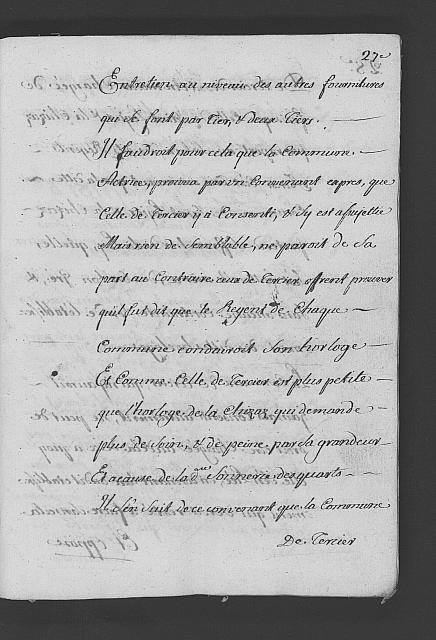 27e
Entretien au niveau des autres fournitures
qui se font par Tier, & deux Tiers.
Il faudroit pour cela que la Commune
Actrice, prouva par un Convenant expres, que
Celle de Tercier y a Consenti, & s'y est assujettie
Mais rien de Semblable, ne paroit de Sa
part au Contraire ceux de Tercier offrent prouver
qu'il fut dit que le Regent de Chaque
Commune conduiroit Son horloge
Et Comme Celle de Tercier est plus petite
que l'horloge de la qui demande
plus de Soin, & de peine, par sa grandeur
Et acause de la dite Sonnerie des quarts
Il s'en Suit de ce convenant que la Commune
De Tercier